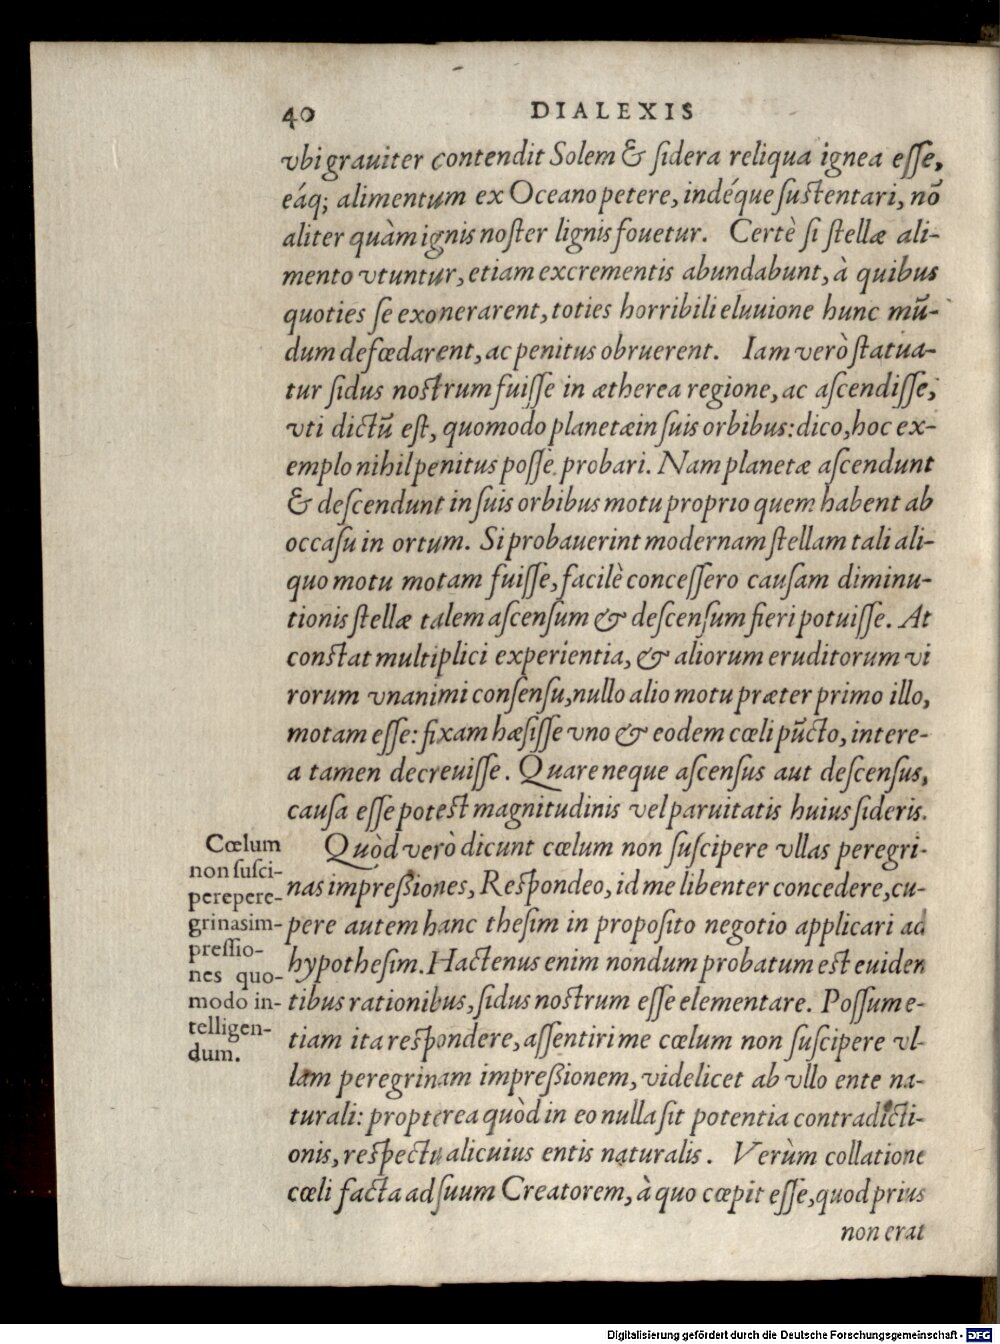 40 DIALEXIS
vbi grauiter contendit Solem & ſidera reliqua ignea eſſe,
eáq; alimentum ex Oceano petere, indéque ſustentari, nō
aliter quàm ignis noſter lignis fouetur. Certè ſi ſtellæ ali-
mento vtuntur, etiam excrementis abundabunt, à quibus
quoties ſe exonerarent, toties horribili eluuione hunc mū-
dum defœdarent, ac penitus obruerent. Iam verò ſtatua-
tur ſidus nostrum fuiſſe in ætherea regione, ac aſcendiſſe,
vti dictū eſt, quomodo planetæ in ſuis orbibus: dico, hoc ex-
emplo nihil penitus poſſe probari. Nam planetæ aſcendunt
& deſcendunt in ſuis orbibus motu proprio quem habent ab
occaſu in ortum. Si probauerint modernam ſtellam tali ali-
quo motu motam fuiſſe, facilè conceſſero cauſam diminu-
tionis ſtellæ talem aſcenſum & deſcenſum fieri potuiſſe. At
constat multiplici experientia, & aliorum eruditorum vi
rorum vnanimi conſenſu, nullo alio motu præter primo illo,
motam eſſe: fixam hæſiſſe vno & eodem cœli pūcto, intere-
a tamen decreuiſſe. Quare neque aſcenſus aut deſcenſus,
cauſa eſſe potest magnitudinis vel paruitatis huius ſideris.
Quòd verò dicunt cœlum non ſuſcipere vllas peregri-
nas impreßiones, Reſpondeo, id me libenter concedere, cu-
pere autem hanc theſim in propoſito negotio applicari ad
hypotheſim. Hactenus enim nondum probatum est euiden
tibus rationibus, ſidus nostrum eſſe elementare. Poſſum e-
tiam ita reſpondere, aſſentiri me cœlum non ſuſcipere vl-
lam peregrinam impreßionem, videlicet ab vllo ente na-
turali: propterea quòd in eo nulla ſit potentia contradicti-
onis, reſpectu alicuius entis naturalis. Verùm collatione
cœli facta ad ſuum Creatorem, à quo cœpit eſſe, quod prius
non erat
Cœlum
non ſuſci-
pere pere-
grinas im-
preſſio-
nes quo-
modo in-
telligen-
dum.
Digitalisierung gefördert durch die Deutsche Forschungsgemeinschaft - DFG